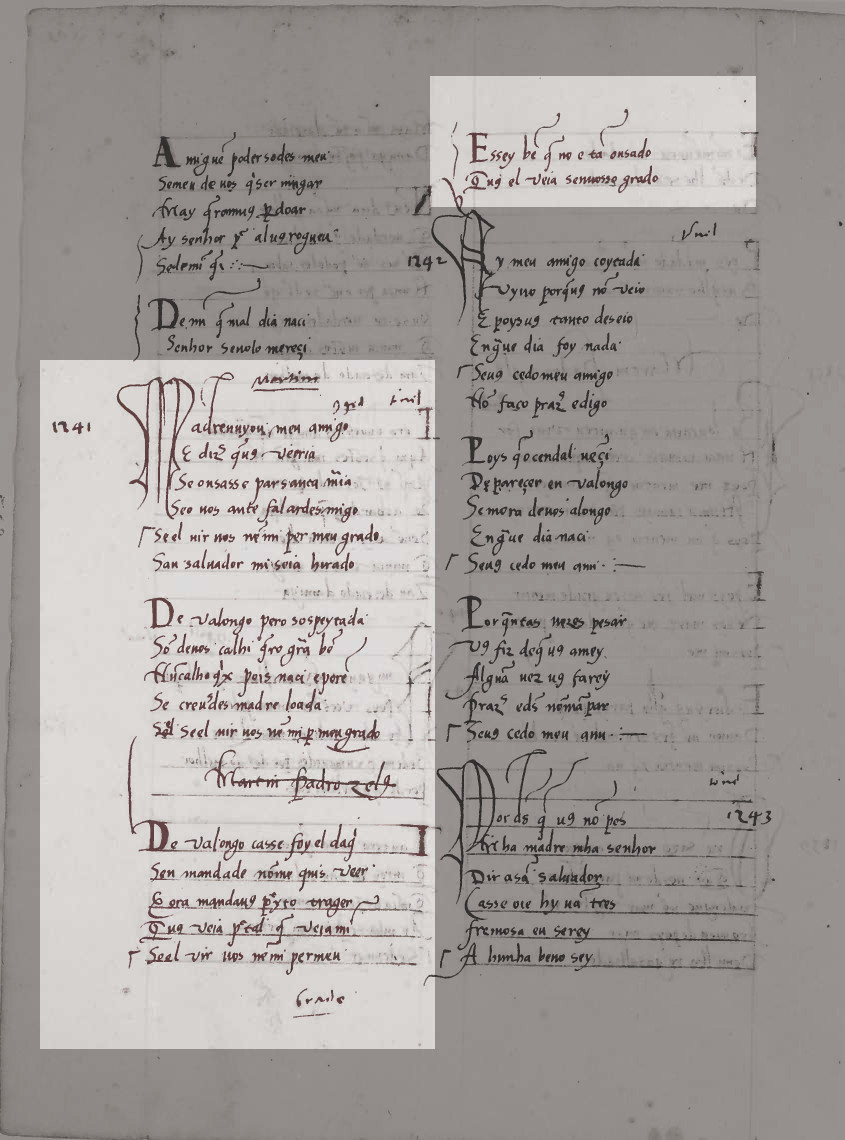 Amigue poder sodes meu
Semeu de uos q̃ser mingar
May q̃romug ꝑdoar
Ay senhor pr̃ alug rogueu
Sedemi q̃
De mi q̃ mal dia naci
Senhor seuolo mereçi
Martim
1241
Madre uuyou meu amigo
E diz̃ q̃ug ueeria
Se ousasse par sanca mia
Seo uos ante falardes migo
Seel uir uos nẽmi per meu grado
San saluador mi seia hirado
De ualongo pero sospeytada
Sõ deuos ca lhi q̃ro grã bẽ
Nũcalho q̃x poiz naci e porẽ
Se creuẽdes madre loada
Seel uir uos nẽ mi ꝑ meu grado
Martin Padro zelg
De ualongo casse foy el daq̃
Sen mandade nõme quis ueer
E ora mandaug p̃yto trager
Que ueia pr̃ tal q̃ ueia mi
Seel uir uos nẽmi per meu
Grado
E ssey bẽ q̃ nõ e tã ousado
Que el ueia sen uosso grado
1242
Ay meu amigo coytada
Vyuo porq̃ug nõ ueio
E poysug tanto deseio
En gue dia foy nada
Seug cedo meu amigo
Nõ faco praz̃ e digo
Poys q̃ o cendal uẽçi
De pareçer en ualongo
Se mora de uos alongo
En gue dia naci
Seug cedo meu ami
Por q̃ntas uezes pesar
Ug fiz deq̃ ug amey
Algũa uez ug farey
Praz̃ e ds̃ nõma par
Seug cedo meu ami
1243
Por ds q̃ ug nõ pes
Mha madre mha senhor
Dir a sã saluador
Casse oie hy uã tres
fremosa eu serey
A hunha beno sey